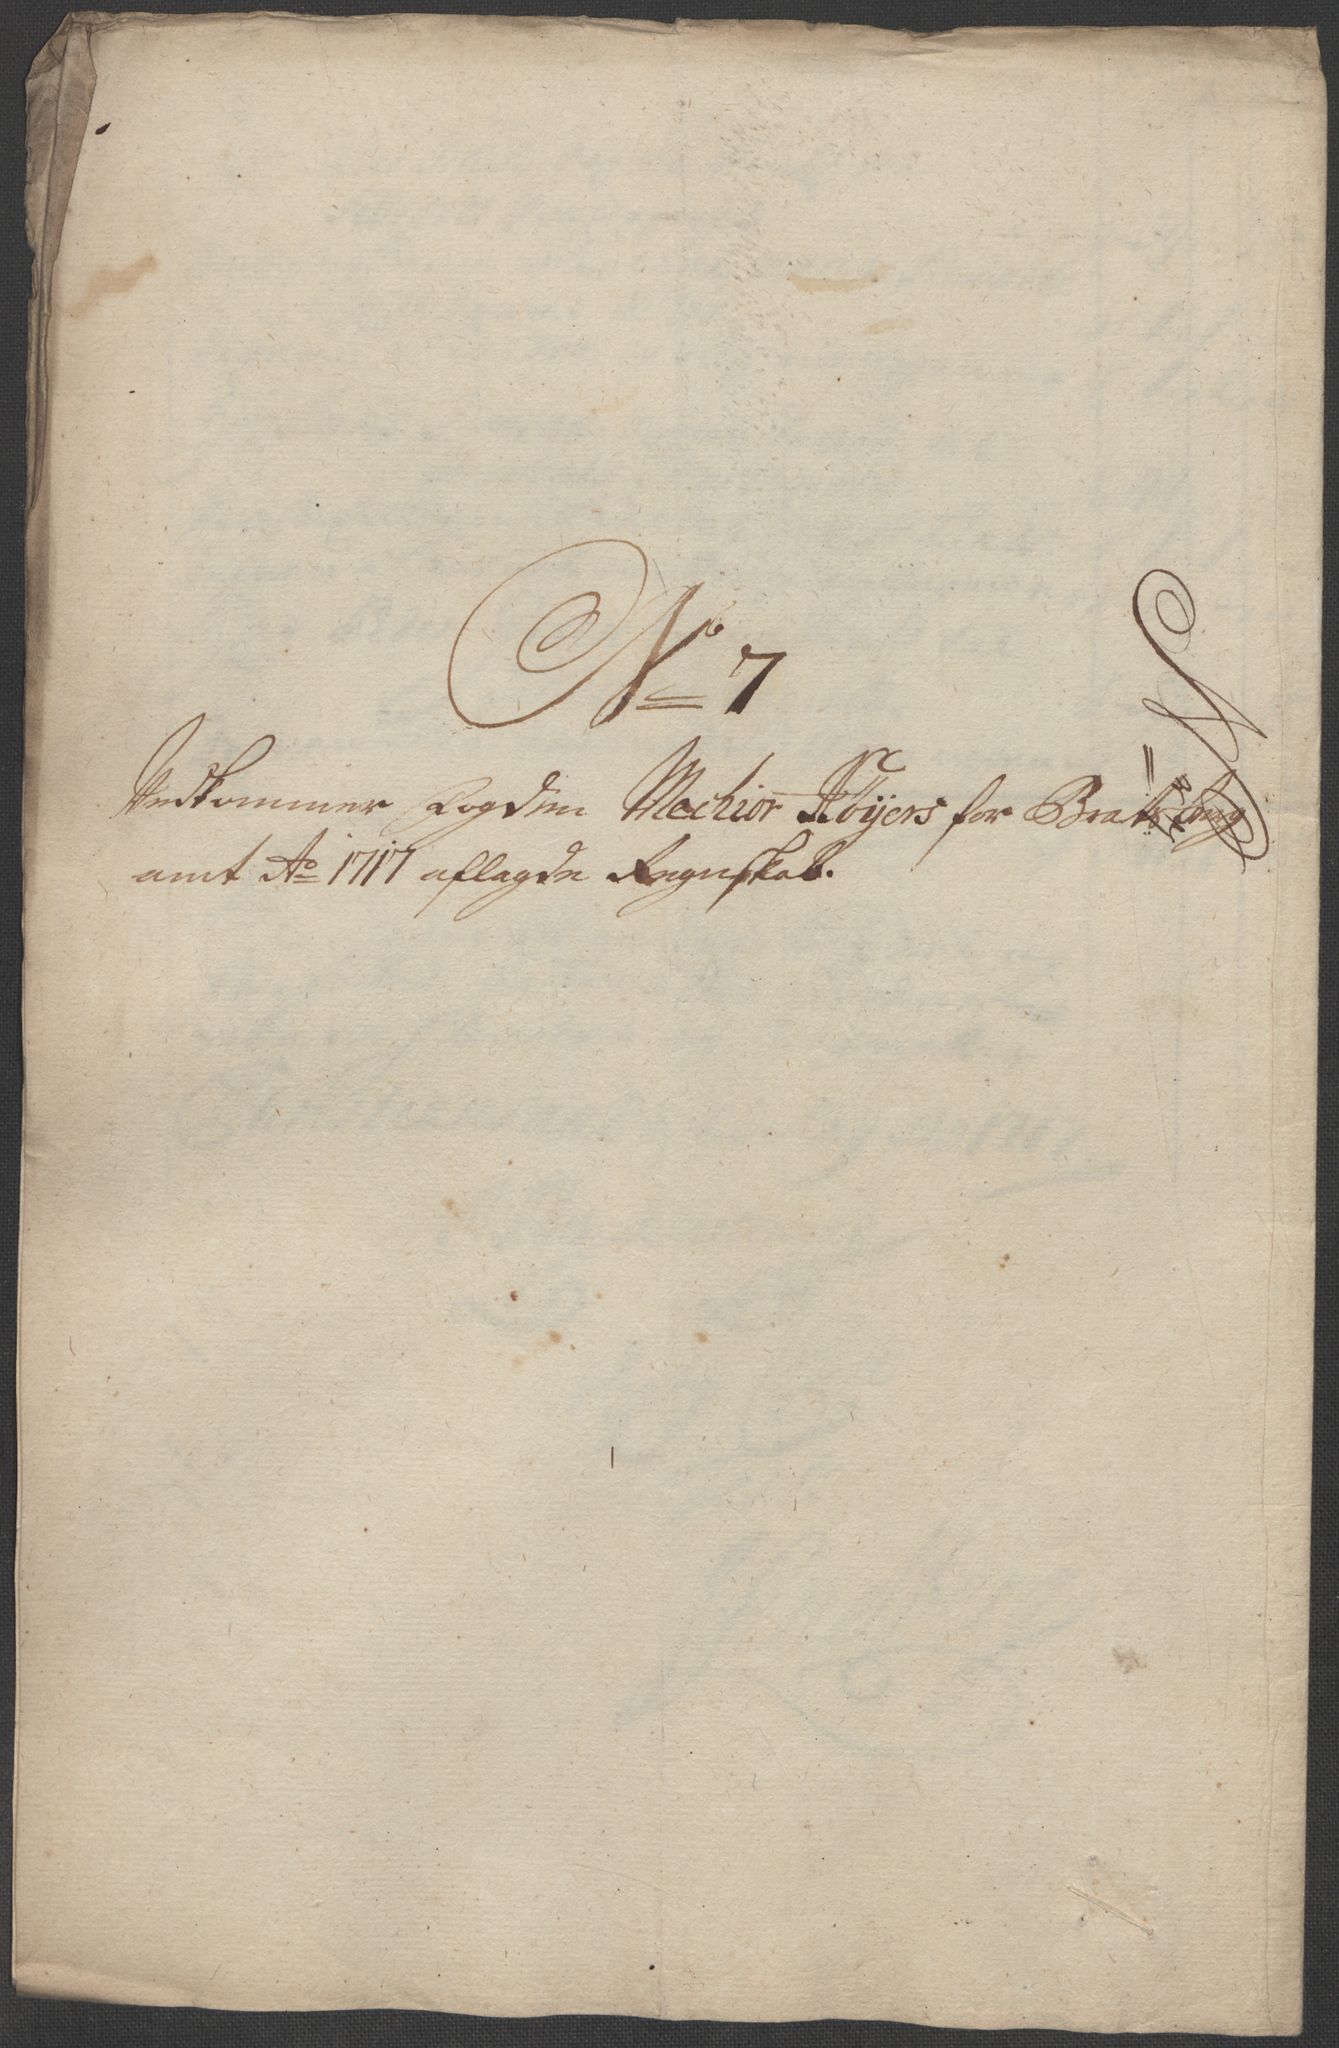 No 7
Vedkommer Fogden Mechior Röÿers for Bratzberg
amt Ao 1717 aflagde Regnskab.